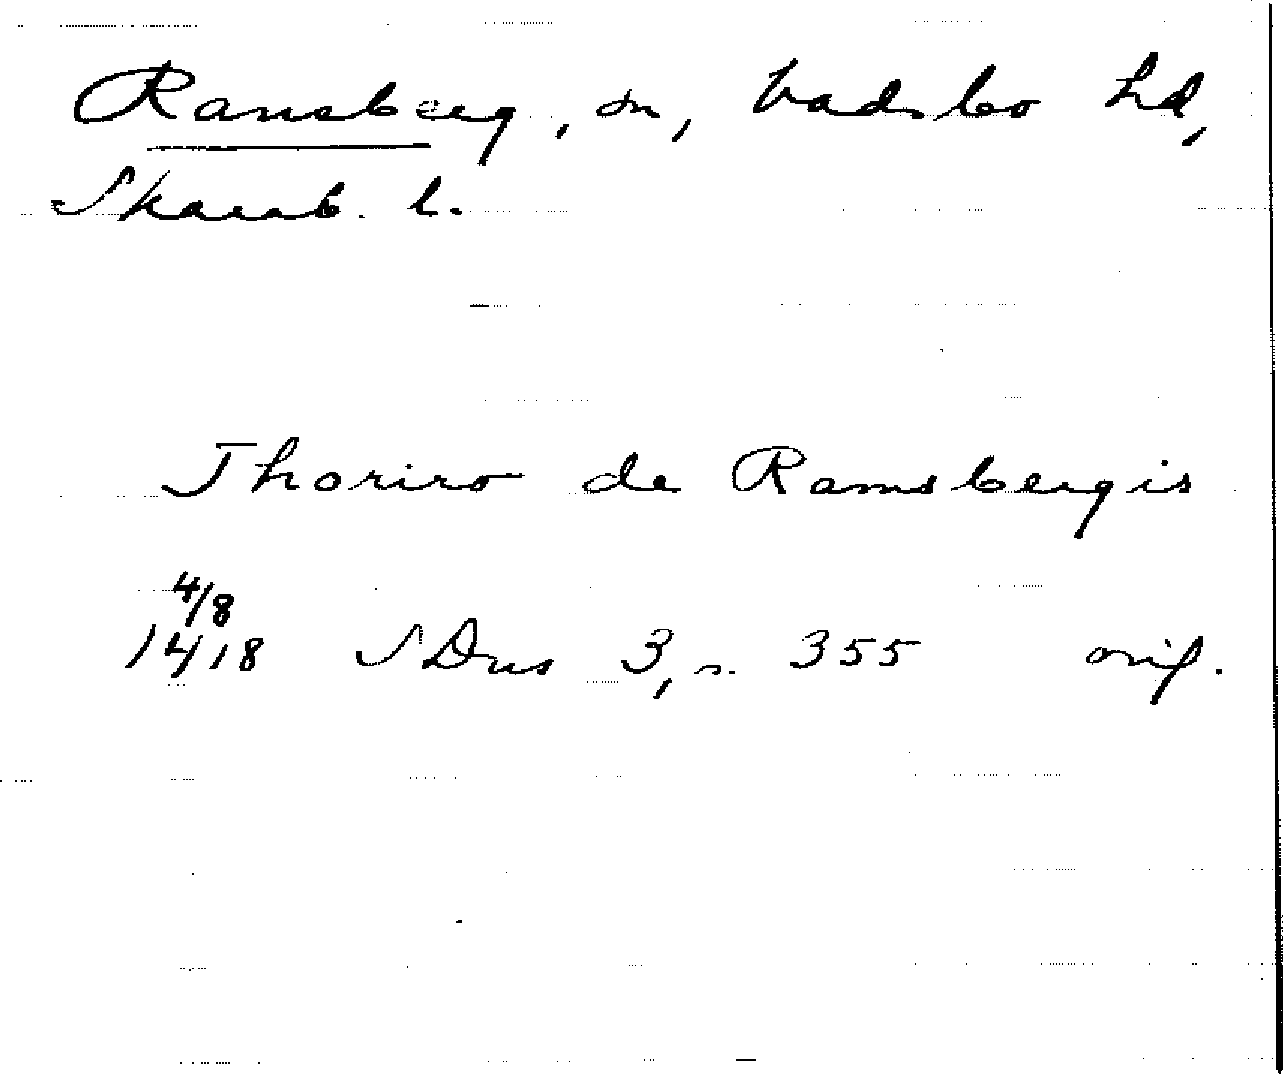 Ransberg, sn, Vadsbo hd,
Skarab. l.
Thoriro de Ramsbergis
4/8
1418 SDns 3, n. 355 orig.